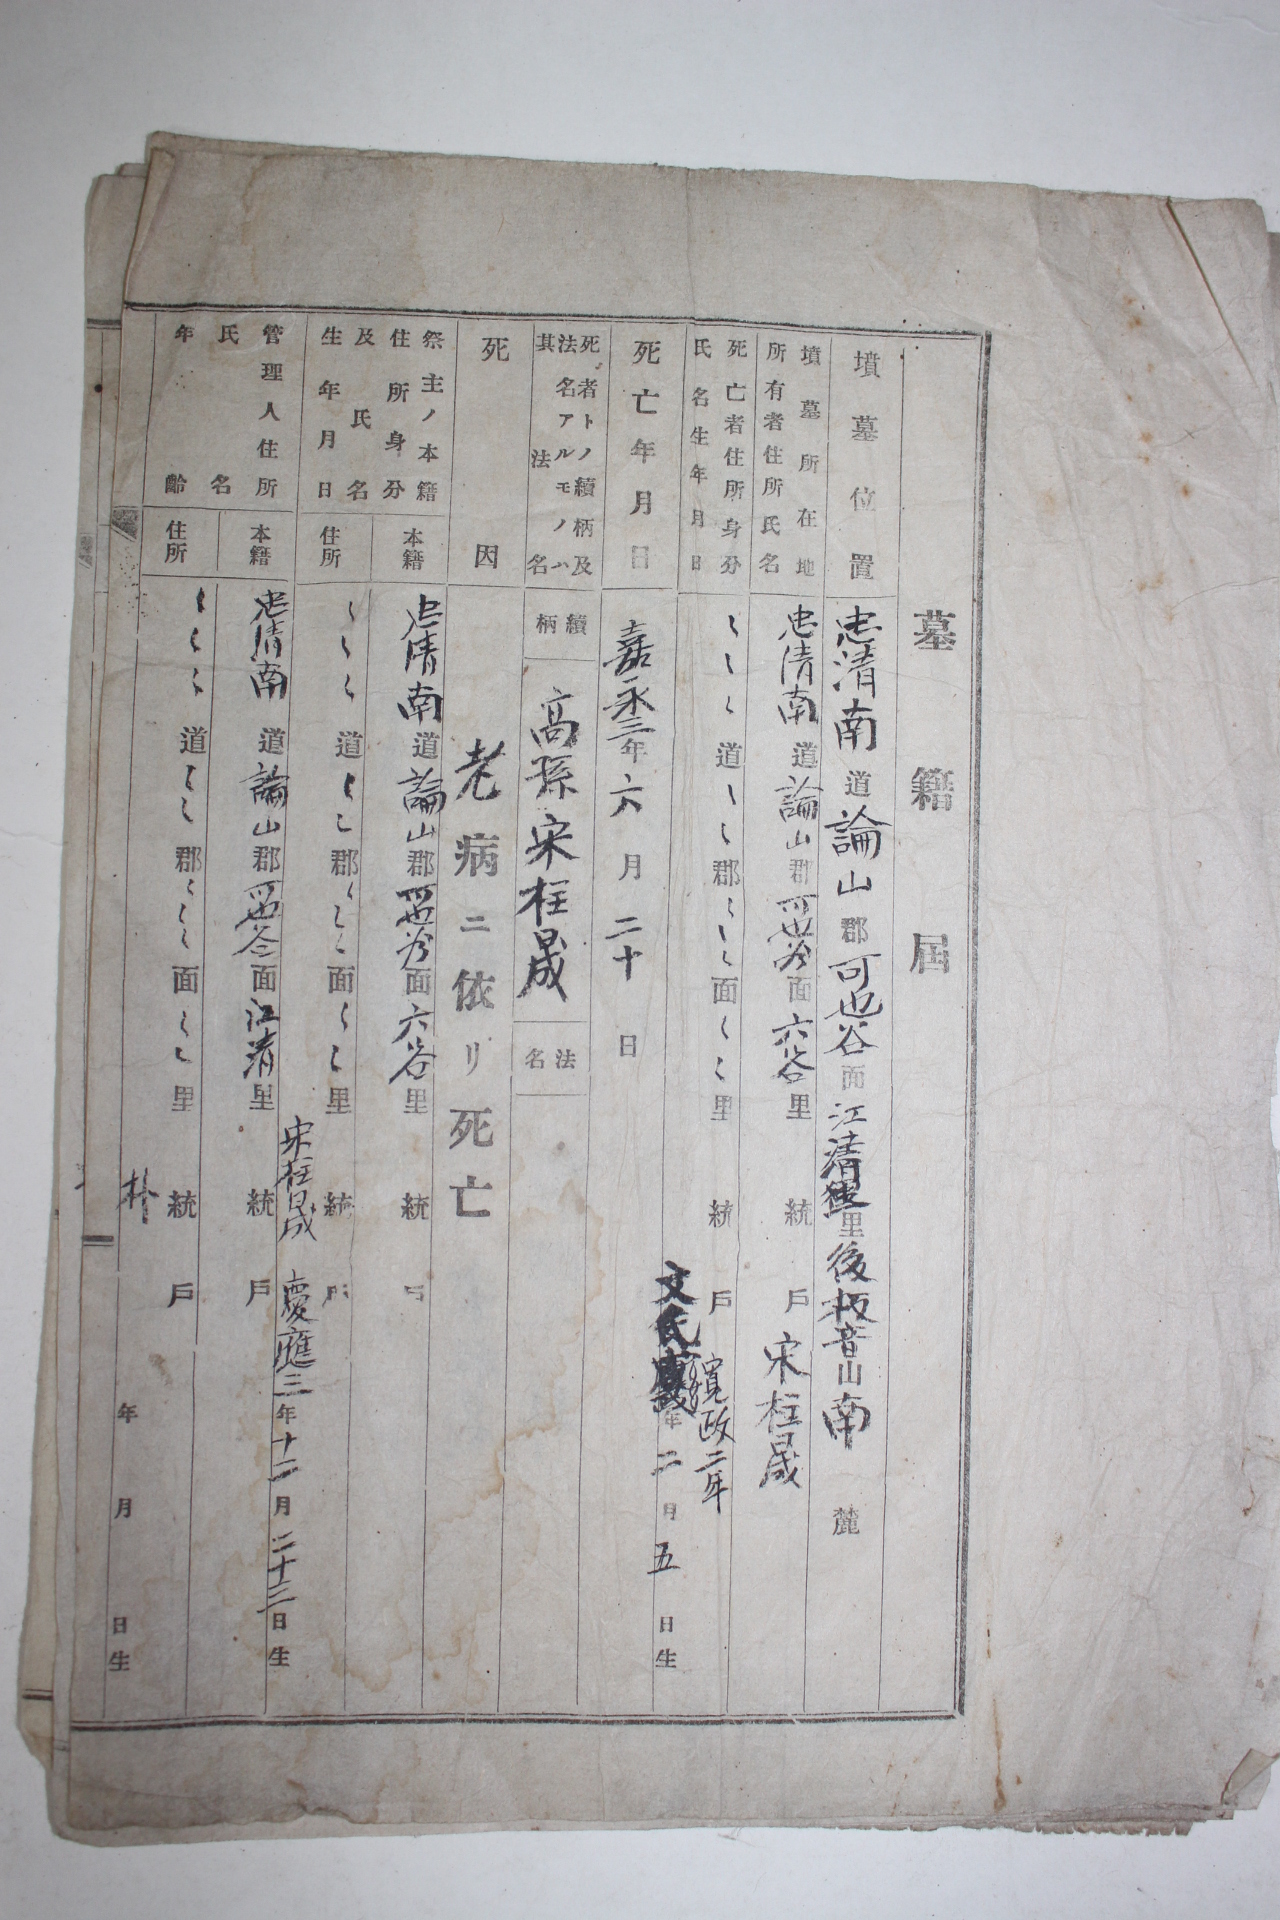 墓籍届
墳墓位置
忠清南道論山郡可也谷面江清里後板音山南麓
墳墓所在地
所有者住所氏名
忠清南道論山郡可也谷面六谷里 統 戶 宋柱晟
死亡者住所身分
氏名生年月日
〻〻〻道〻〻郡〻〻〻面〻〻里 統 戶
文氏 寛政二年
年二月五日生
死亡年月日
嘉永三年六月二十日
死者トノ續柄及
法名アルモノハ
其法名
續柄
高孫宋柱晟
法名
死因
老病ニ依リ死亡
祭主ノ本籍
住所身分
及氏名
生年月日
本籍
忠清南道論山郡可也谷面六谷里 統 戶
住所
〻〻〻道〻〻郡〻〻〻面〻〻里 統 戶
宋柱晟 慶應三年十二月二十三日生
管理人住所
氏名
年齡
本籍
忠清南道論山郡可也谷面江清里 統 戶
住所
〻〻〻道〻〻郡〻〻〻面〻〻里 統 戶
朴 年 月 日生